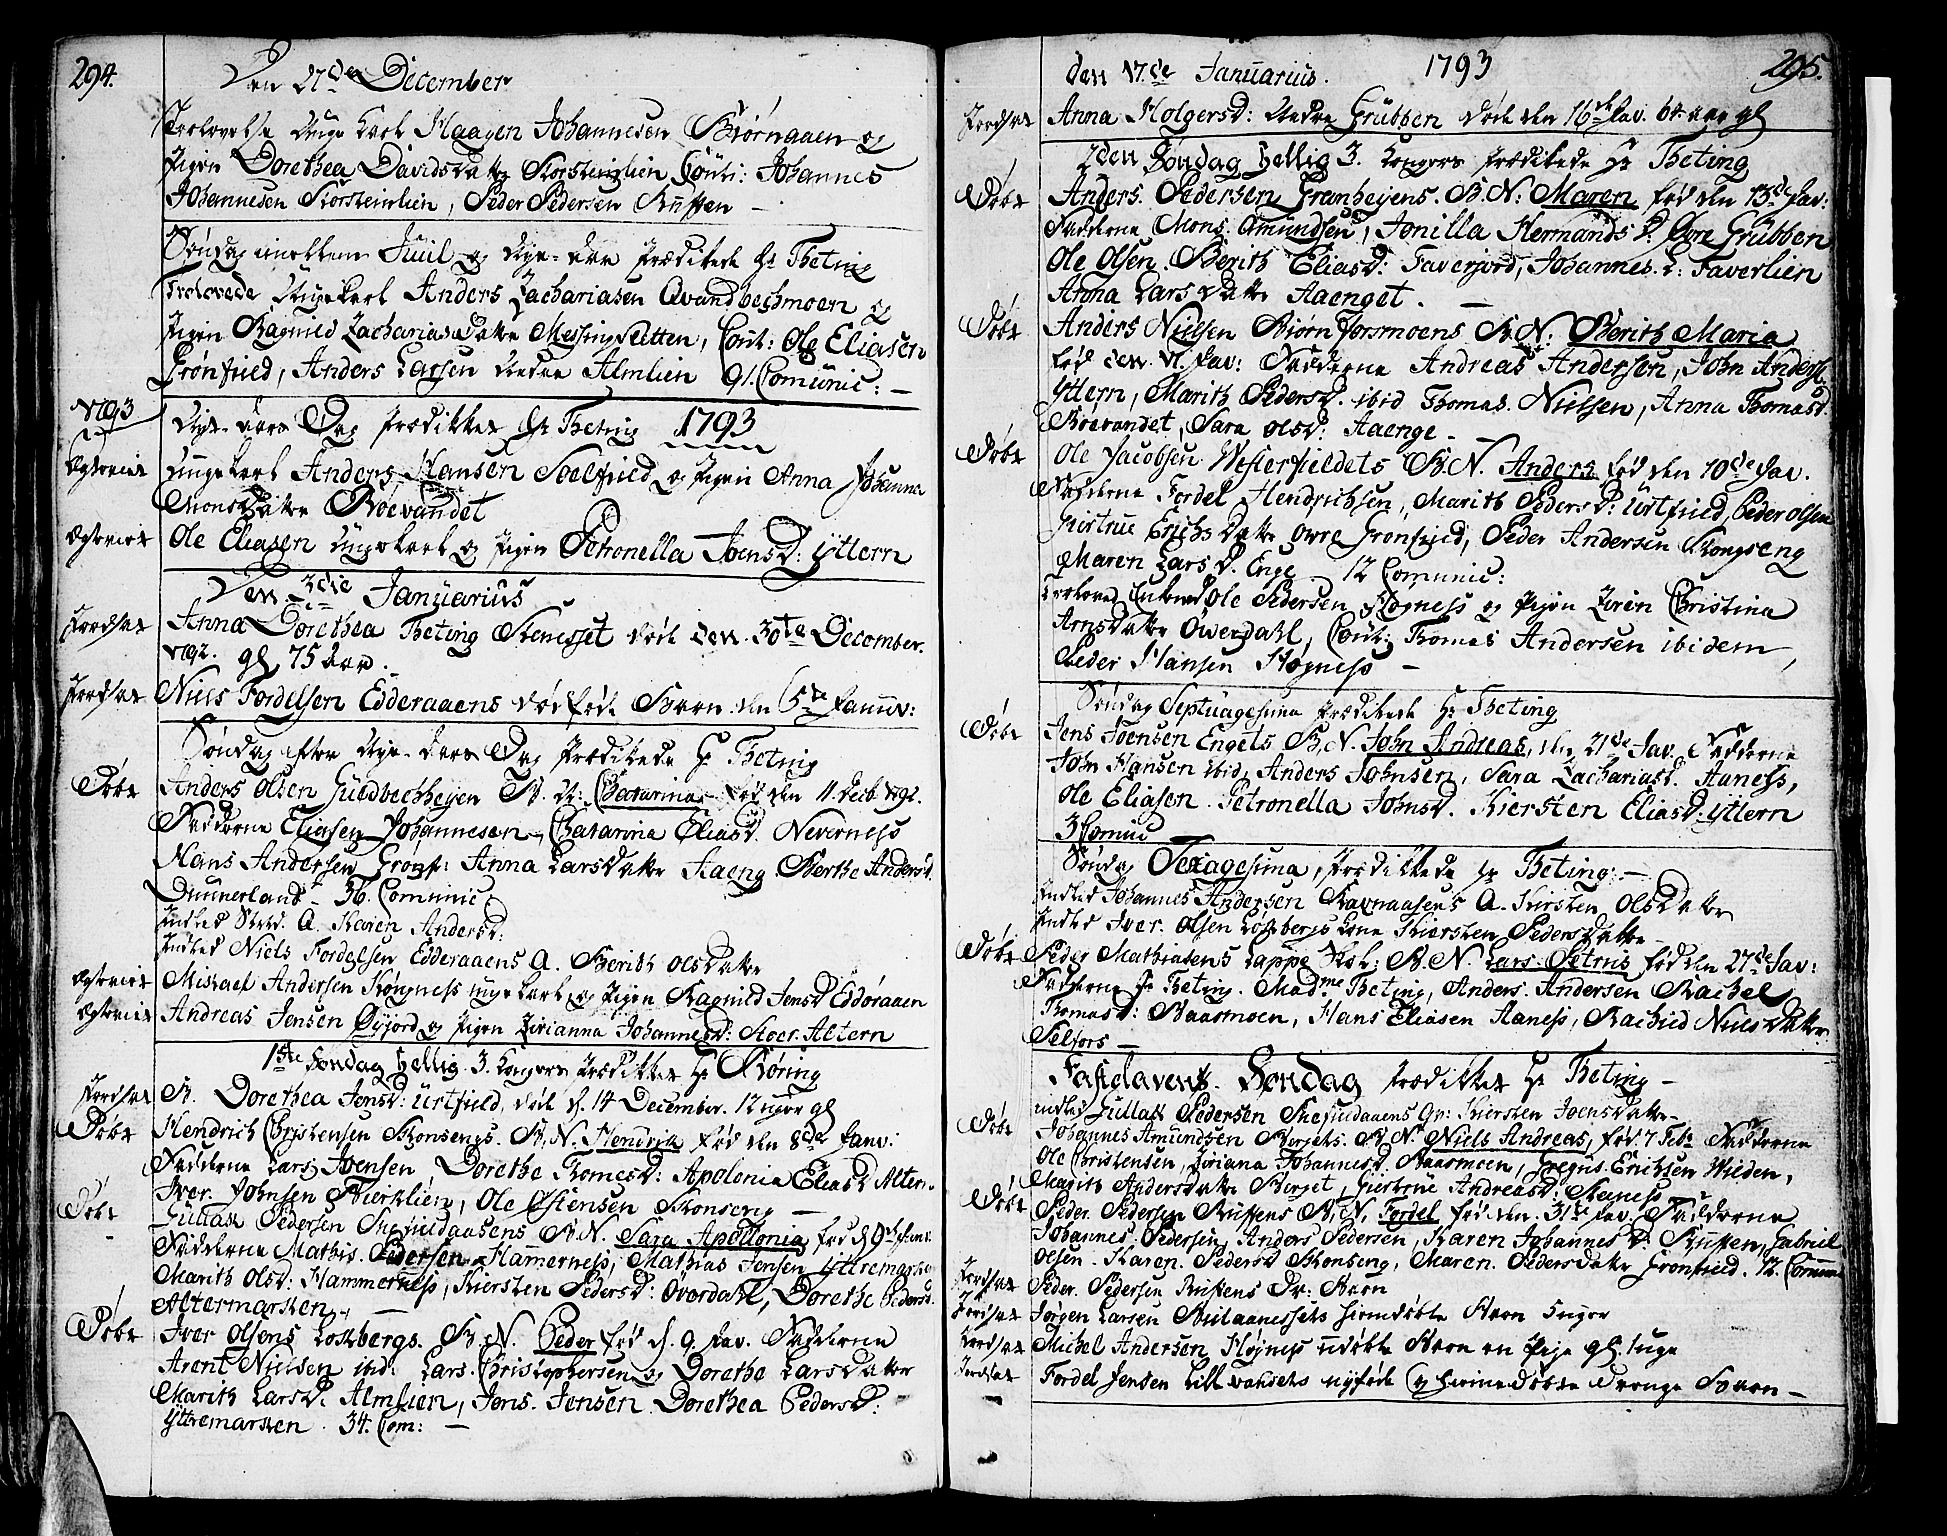 294.
Den 27de December
Trolovelse Unge Karl Haagen Johannesen Biørnaaen og
Pigen Dorethea Davidsdatter Storsteinlien Cauti: Johannes
Johannesen Storsteinlien, Peder Pedersen Russen —
Søndag imellem Juul og Nyt-aar Prædikede Hr Theting
Trolovede Ungekarl Anders Zachariasen Qvandbechmoen og
Pigen Ragnild Zachariasdatter Messingsletten, Caut: Ole Eliasen
Grønfield, Anders Larsen Almlien 91. Comunic: —
1793
Nyt-aars Dag Prædikket Hr Theting 1793
Ægteviet Ungekarl Anders Hansen Soelfield og Pigen Anna Johanna
Monsdatter Røevandet
Ægteviet Ole Eliasen Ungekarl og Pigen Petronella Joensd: Yttern
Den 3die Januarius
Jordfæst Anna Dorethea Theting Stenesset døde den 30te December
1792. gl 75 Aar.
Jordfæst Niels Fordelsen Edderaaens dødføde Barn den 5te Januv:
Søndag efter Nyt-aars Dag Prædikede Hr Theting
Døbt Anders Olsen Guldbechheyen B. N: Chatarina født den 11. Decb 1792.
Fadderne Eliasen Johannesen, Chatarina Eliasd. Neverness
Hans Andersen Gronf: Anna Larsdatter Aaeng Berthe Andersd.
Dunnerland - 36. Comunic:
Indled A. Karen Andersd:
Indled Niels Fordelsen Edderaaens A. Berith Olsdatter
Ægteviet Mickael Andersen Høgness ungekarl og Pigen Ragnild Jensd Edderaaen
Ægteviet Andreas Jensen Øyjord og Pigen Zirianna Johannesd: Stoer Altern
1ste Søndag Hellig 3. Konger Prædikket Hr Røring
Jordfæst B. Dorethea Jensd: Urtfield, døde d. 14 December. 12 uger gl
Døbt Hendrich Christensen Skonsengs. B. N. Hendrik født den 8de Janv:
Fadderne Lars Joensen Dorethe Thomesd: Apolonia Eliasd Altern.
Iver Johnsen Stierklien, Ole Østensen Skonseng —
Døbt Gullach Pedersen Snefieldaasens B. N. Sara Apollonia født d 9de Janv.
Fadderne Mathis Pedersen Hammerness, Mathias Jensen Yttremarsken
Marith Olsd: Hammerness, Kiersten Pedersd: Overdahl, Dorethe Pedersd.
Altermarsken —
Døbt Iver Olsens Løssbergs. B. N. Peder født d. 9. Jav. Fadderne
Arent Nielsen ibid: Lars Christophersen og Dorethe Larsdatter
Marith Larsd. Almlien, Jens Jensen Dorethea Pedersd:
Yttremarsken. 34. Com: —
den 17de Januarius. 1793 295.
Jordfæst Anna Holgersd: Nedre Grubben døde den 16de Jav. 64 aar gl
2den Søndag Hellig 3. Konger Prædikede Hr Theting
Døbt Anders Pedersen Granheyens. B. N: Maren født den 13de Jav:
Fadderne Mons Amundsen, Jonilla Hermands D: Øvre Grubben
Ole Olsen. Berith Eliasd: Faverjord, Johannes L: Faverlien
Anna Larsdatter Aaenget. —
Døbt Anders Nielsen Biørnforsmoens B. N: Berith Maria
født den 11. Jav: Fadderne Andreas Andersen, John Anders.
Yttern, Marith Pedersd. ibid Thomas Nielsen, Anna Thomasd.
Røevandet, Sara Olsd: Aaenge —
Døbt Ole Jacobsen Westerfieldets B. N. Anders født den 10de Jav.
Fadderne Fordel Hendrichsen, Marith Pedersd: Urtfield, Peder Olsen
Girtrue Erichsdatter Øvre Grønfield, Peder Andersen Kongseng
Maren Larsd. Enge 12 Comunic:
Trolovet Enkemd Ole Pedersen Høgness og Pigen Ziren Christina
Arnsdatter Owerdahl, Caut: Thomas Andersen ibidem,
Peder Hansen Høgness —
Søndag Septuagesima Prædikede Hr Theting
Døbt Jens Joensen Engets B. N. John Andreas, den 21de Jav. Fadderne
John Hansen ibid, Anders Johnsen, Sara Zachariasd. Aaness,
Ole Eliasen. Petronella Johnsd. Kiersten Eliasd: Yttern
3 Comuc
Søndag Sexagesima, Prædikkede Hr Theting. —
Indled Johannes Andersen Ravnaasens A. Kirsten Olsdatter
Indled Iver Olsen Løssbergs Kone Kiersten Pedersdatter
Døbt Peder Mathiasens Lappe B. N. Lars Petrus født den 27de Jav:
Fadderne Hr Theting. Madme Theting, Anders Andersen Rachel
Thomasd: Baasmoen, Hans Eliasen Aaness, Rachild Nielsdatter
Selfors —
Fastelavens Søndag Prædikket Hr Theting —
indled Gullach Pedersen Snefieldaaens Qv: Kiersten Joensdatter
Døbt Johannes Amundsen Berjets. B. N. Niels Andreas, født 7 Feb. Fadderne
Ole Christensen, Ziriana Johannesd. Baasmoen, Gregus Erichsen Wieden,
Marith Andersdatter Berjet, Giertrue Andreasd. Steness
Døbt Peder Pedersen Russens B. N. Fordel født den 31te Jav. Fadderne
Johannes Pedersen, Anders Pedersen, Karen Johannes D: Russen, Gabriel
Olsen. Karen Pedersd Skonseng, Maren Pedersdatter Grønfield. 12. Comun
Jordfæst Peder Pedersen Russens Barn
Jordfæst Jørgen Larsen hiemdøbte Barn 5 uger
Jordfæst Michel Andersen Høgness udøbte Barn en Pige gl. 1 uge
Jordfæst Fordel Jensen Lillvahsets nyføde og hiemedøbte Drenge Barn —